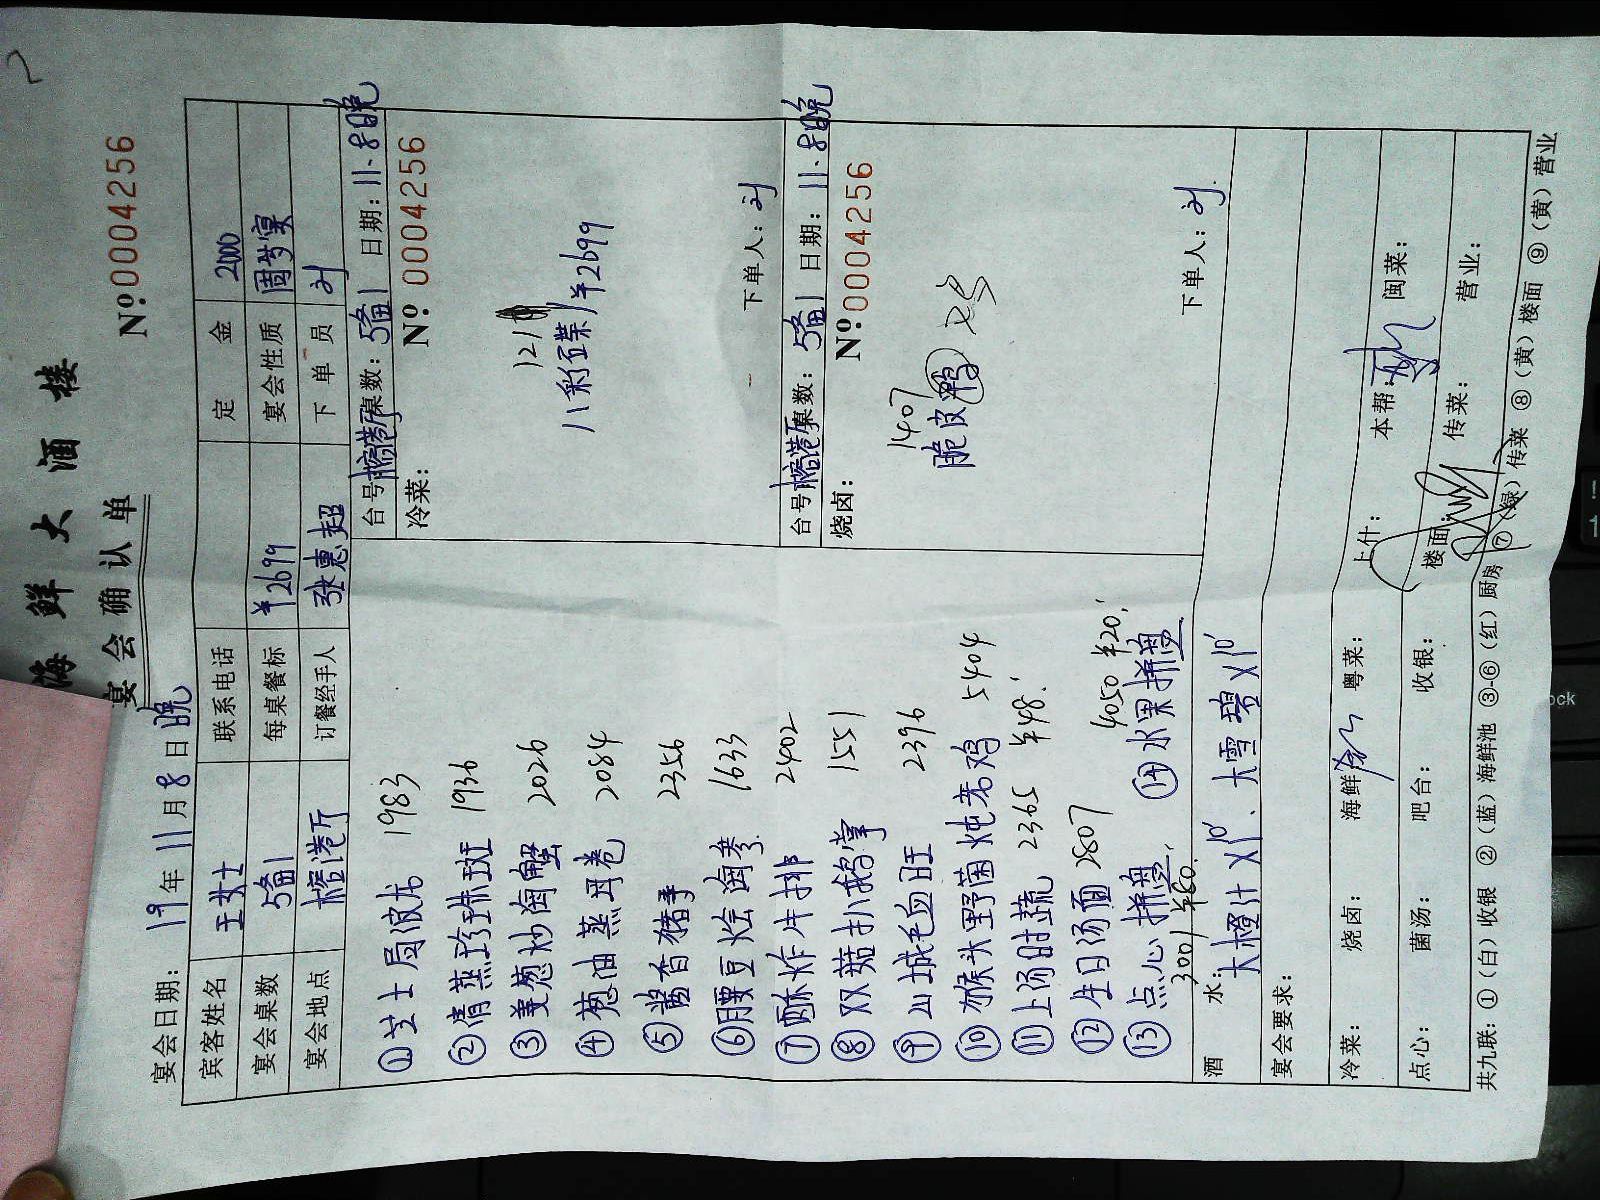 海鲜大酒楼
宴会确认单
№:0004256
宴会日期: 19年11月8日晚
宾客姓名 王女士 联系电话 定金 2000
宴会桌数 5备1 每桌餐标 ¥2699 宴会性质 周岁宴
宴会地点 榕港厅 订餐经手人 张惠超 下单员 刘
①芝士局波龙 1983
②清蒸珍珠斑 1936
③姜葱炒海蟹 2026
④葱油蒸耳卷 2084
⑤酱香猪手 2356
⑥腰豆烩海参 1633
⑦酥炸牛排 2402
⑧双菇扒鹅掌 1551
⑨山城毛血旺 2396
⑩猴头野菌炖老鸡 5404
⑪上汤时蔬 2365 ¥48
⑫生日汤面 2807
⑬点心拼盘 3001 ¥60
⑭水果拼盘 4050 ¥20
台号 榕港厅 桌数: 5备1 日期: 11.8晚
冷菜: № 0004256
121
八彩碟 ¥2699
下单人: 刘
台号 榕港厅 桌数: 5备1 日期: 11.8晚
烧卤: №:0004256
1407
脆皮鸭
下单人: 刘
酒水: 大橙汁×10、大雪碧×10
宴会要求:
冷菜: 烧卤: 海鲜 粤菜: 上什: 本帮: 闽菜:
点心: 菌汤: 吧台: 收银: 楼面: 传菜: 营业:
共九联: ①(白)收银 ②(蓝)海鲜池 ③-⑥(红)厨房 ⑦(绿)传菜 ⑧(黄)楼面 ⑨(黄)营业